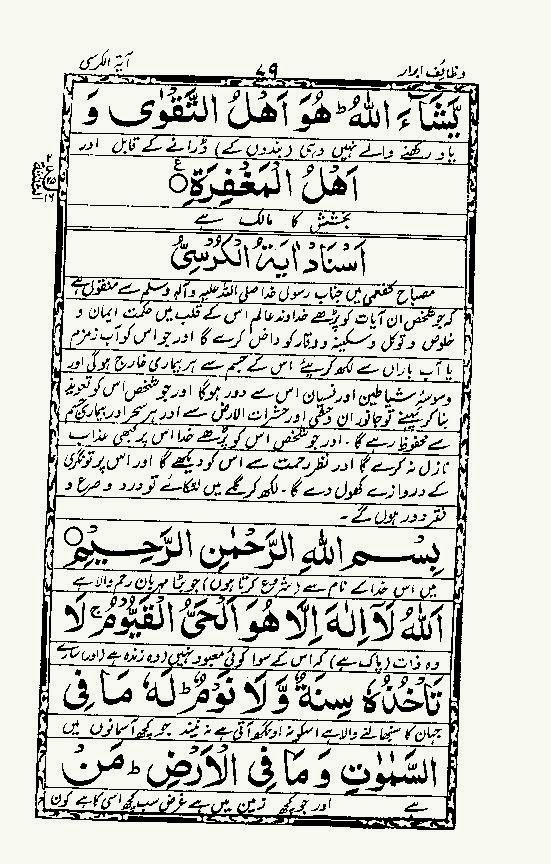 وظائف ابرار ۷۹ آیۃ الکرسی
یَّشَآءَ اللّٰہُ ؕ ھُوَ اَھْلُ التَّقْوٰی وَ
یاد رکھنے والے نہیں وہی (بندوں کے) ڈرانے کے قابل اور
اَھْلُ الْمَغْفِرَۃِ
بخشش کا مالک ہے
اَسْنَادْ اٰیَۃُ الْکُرْسِیُّ
مصباح کفعمی میں جناب رسول خدا صلی اللہ علیہ و آلہ وسلم سے منقول ہے
کہ جو شخص ان آیات کو پڑھے خداوند عالم اس کے قلب میں حکمت ایمان و
خلوص و توکل و سکینہ و وقار کو داخل کرے گا اور جو اس کو آب زمزم
یا آب باراں سے لکھ کر پیئے اس کے جسم سے ہر بیماری خارج ہوگی اور
وسوسۂ شیاطین اور نسیان اس سے دور ہوگا اور جو شخص اس کو تعویذ
بنا کر پہنے تو جانور ان وحشی اور حشرات الارض سے اور ہر سحر اور بیماری چشم
سے محفوظ رہے گا۔ اور جو شخص اس کو پڑھے خدا اس پر کبھی عذاب
نازل نہ کرے گا اور نظر رحمت سے اس کو دیکھے گا اور اس پر تونگری
کے دروازے کھول دے گا۔ لکھ کر گلے میں لٹکائے تو درد و صرع و
فقر دور ہوں گے۔
بِسْمِ اللّٰہِ الرَّحْمٰنِ الرَّحِیْمِ
میں اس خدا کے نام سے (شروع کرتا ہوں) جو بڑا مہربان رحم والا ہے
اَللّٰہُ لَآ اِلٰہَ اِلَّا ھُوَ اَلْحَیُّ الْقَیُّوْمُ ۚ لَا
وہ ذات (پاک ہے) کہ اس کے سوا کوئی معبود نہیں (وہ زندہ ہے (اور) سارے
تَأْخُذُہٗ سِنَۃٌ وَّلَا نَوْمٌ ؕ لَہٗ مَا فِی
جہان کا سنبھالنے والا ہے اسکو نہ اونگھ آتی ہے نہ نیند جو کچھ آسمانوں میں
السَّمٰوٰتِ وَمَا فِی الْاَرْضِ ؕ مَنْ
ہے اور جو کچھ زمین میں ہے غرض سب کچھ اسی کا ہے کون